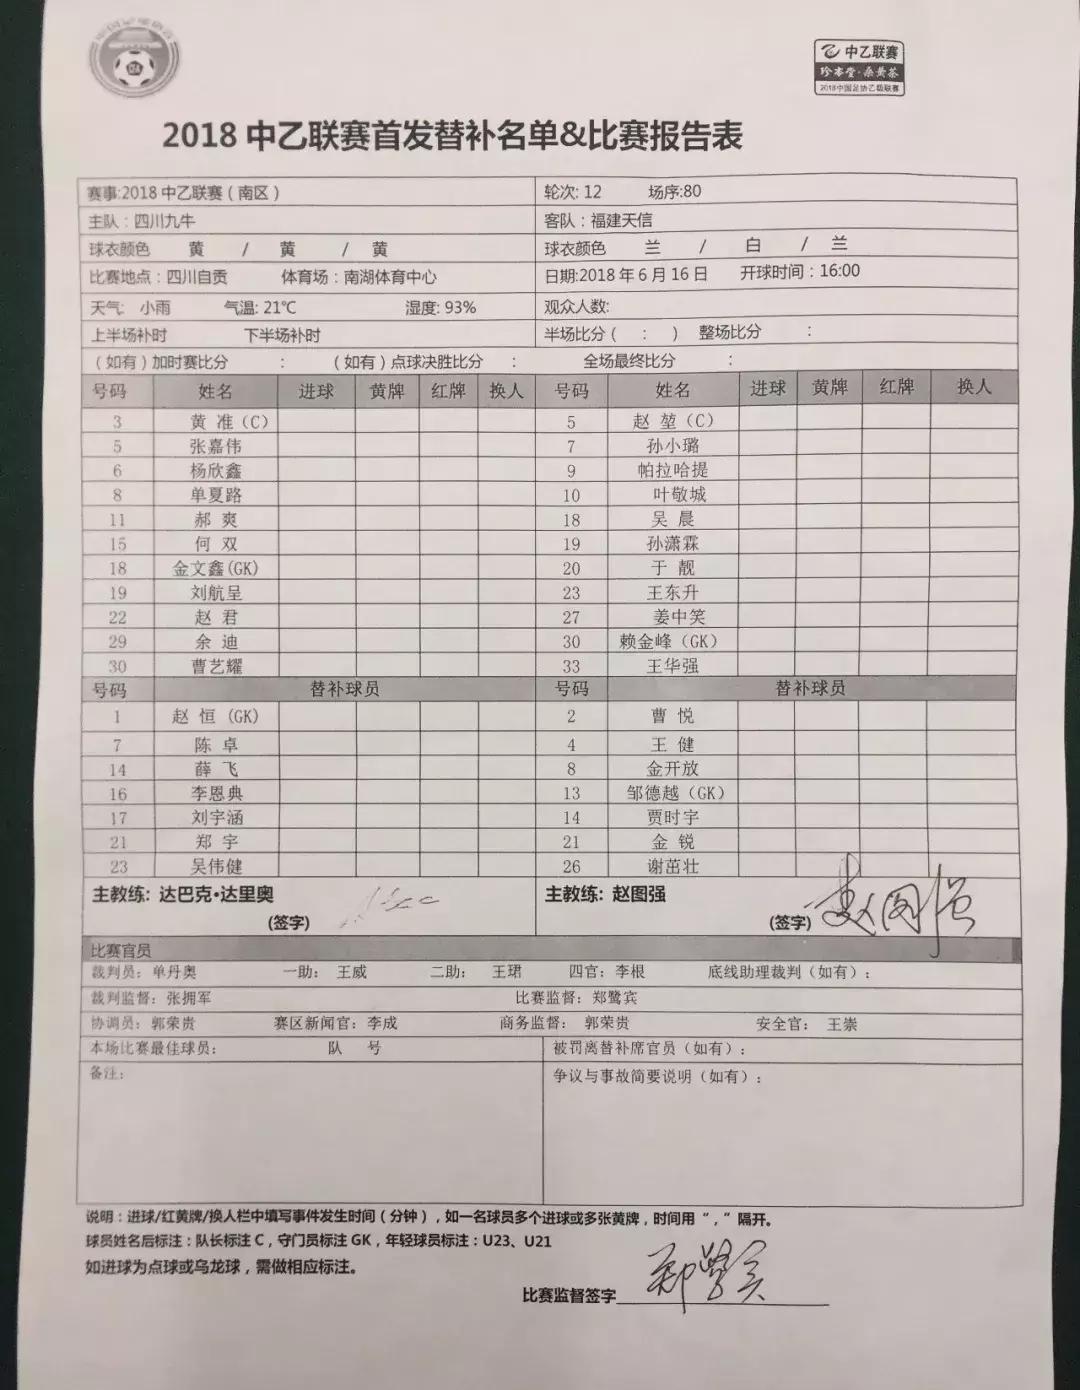 中乙联赛
珍本堂·桑黄茶
2018中国足协乙级联赛
2018 中乙联赛首发替补名单&比赛报告表
赛事:2018 中乙联赛（南区） 轮次: 12 场序:80
主队：四川九牛 客队：福建天信
球衣颜色 黄 / 黄 / 黄 球衣颜色 兰 / 白 / 兰
比赛地点：四川自贡 体育场：南湖体育中心 日期:2018 年 6 月 16 日 开球时间：16:00
天气: 小雨 气温: 21℃ 湿度: 93% 观众人数:
上半场补时 下半场补时 半场比分（ ： ） 整场比分 ：
（如有）加时赛比分 ： （如有）点球决胜比分 ： 全场最终比分 ：
号码 姓名 进球 黄牌 红牌 换人 号码 姓名 进球 黄牌 红牌 换人
3 黄 准（C） 5 赵 堃（C）
5 张嘉伟 7 孙小璐
6 杨欣鑫 9 帕拉哈提
8 单夏路 10 叶敬城
11 郝 爽 18 吴 晨
15 何 双 19 孙潇霖
18 金文鑫(GK) 20 于 靓
19 刘航呈 23 王东升
22 赵 君 27 姜中笑
29 余 迪 30 赖金峰（GK）
30 曹艺耀 33 王华强
号码 替补球员 号码 替补球员
1 赵 恒（GK） 2 曹 悦
7 陈 卓 4 王 健
14 薛 飞 8 金开放
16 李恩典 13 邹德越（GK）
17 刘宇涵 14 贾时宇
21 郑 宇 21 金 锐
23 吴伟健 26 谢茁壮
主教练: 达巴克•达里奥 主教练: 赵图强
(签字) (签字) 赵图强
比赛官员
裁判员：单丹奥 一助： 王威 二助： 王珺 四官：李根 底线助理裁判（如有）：
裁判监督：张拥军 比赛监督：郑鹭宾
协调员：郭荣贵 赛区新闻官：李成 商务监督： 郭荣贵 安全官： 王崇
本场比赛最佳球员： 队 号 被罚离替补席官员（如有）：
备注： 争议与事故简要说明（如有）：
说明：进球/红黄牌/换人栏中填写事件发生时间（分钟），如一名球员多个进球或多张黄牌，时间用“，”隔开。
球员姓名后标注：队长标注 C，守门员标注 GK，年轻球员标注：U23、U21
如进球为点球或乌龙球，需做相应标注。
比赛监督签字 郑鹭宾